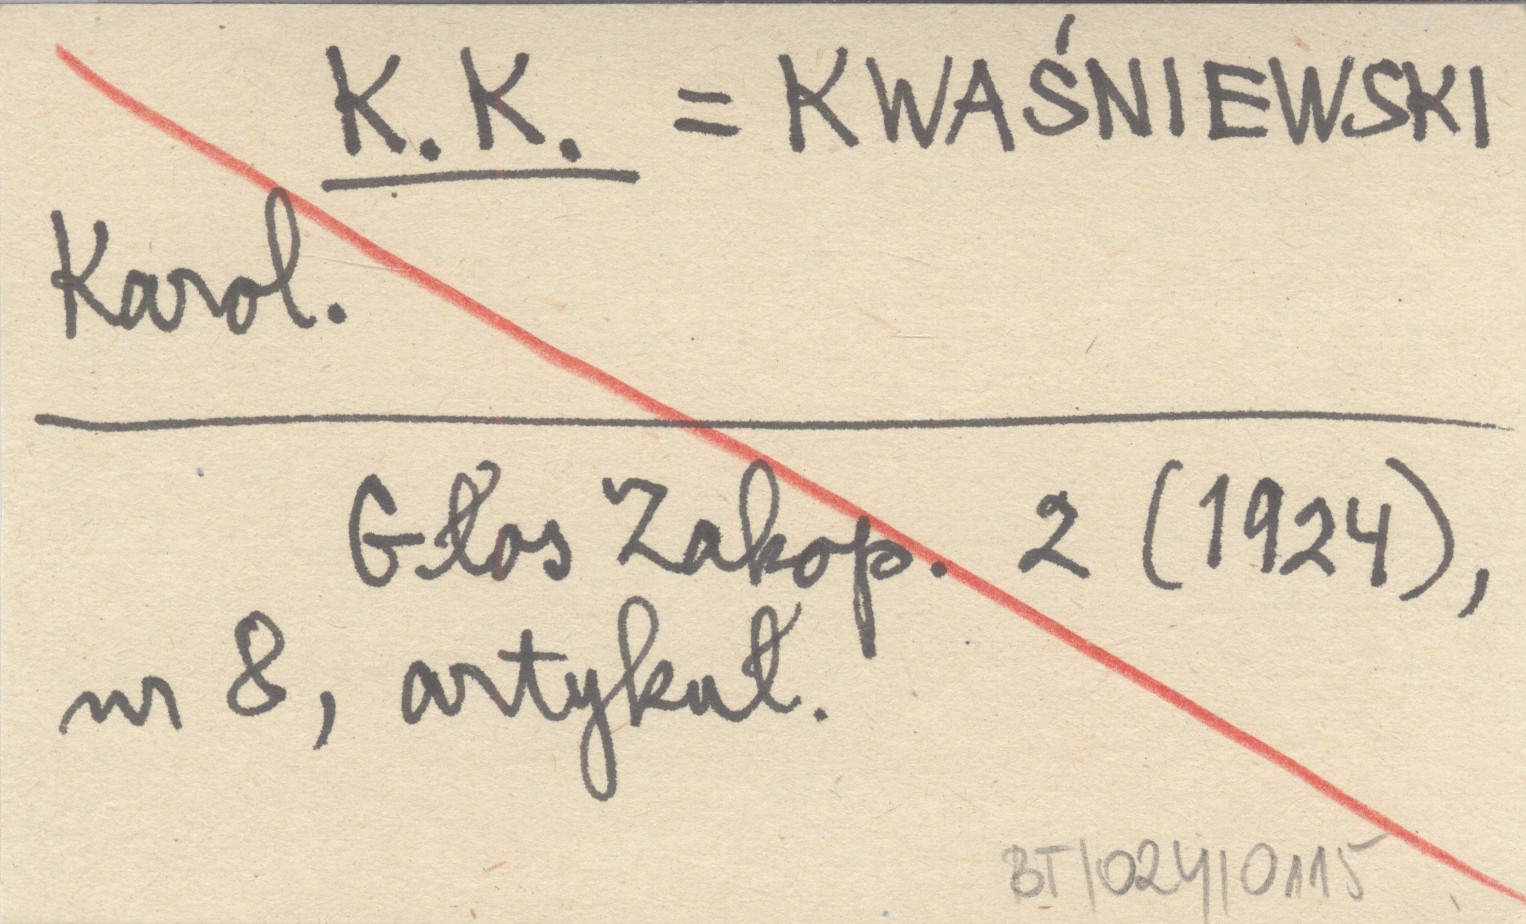 K. K. = KWAŚNIEWSKI
Karol.
Głos Zakop. 2 (1924),
nr 8, artykuł.
BT/024/0115